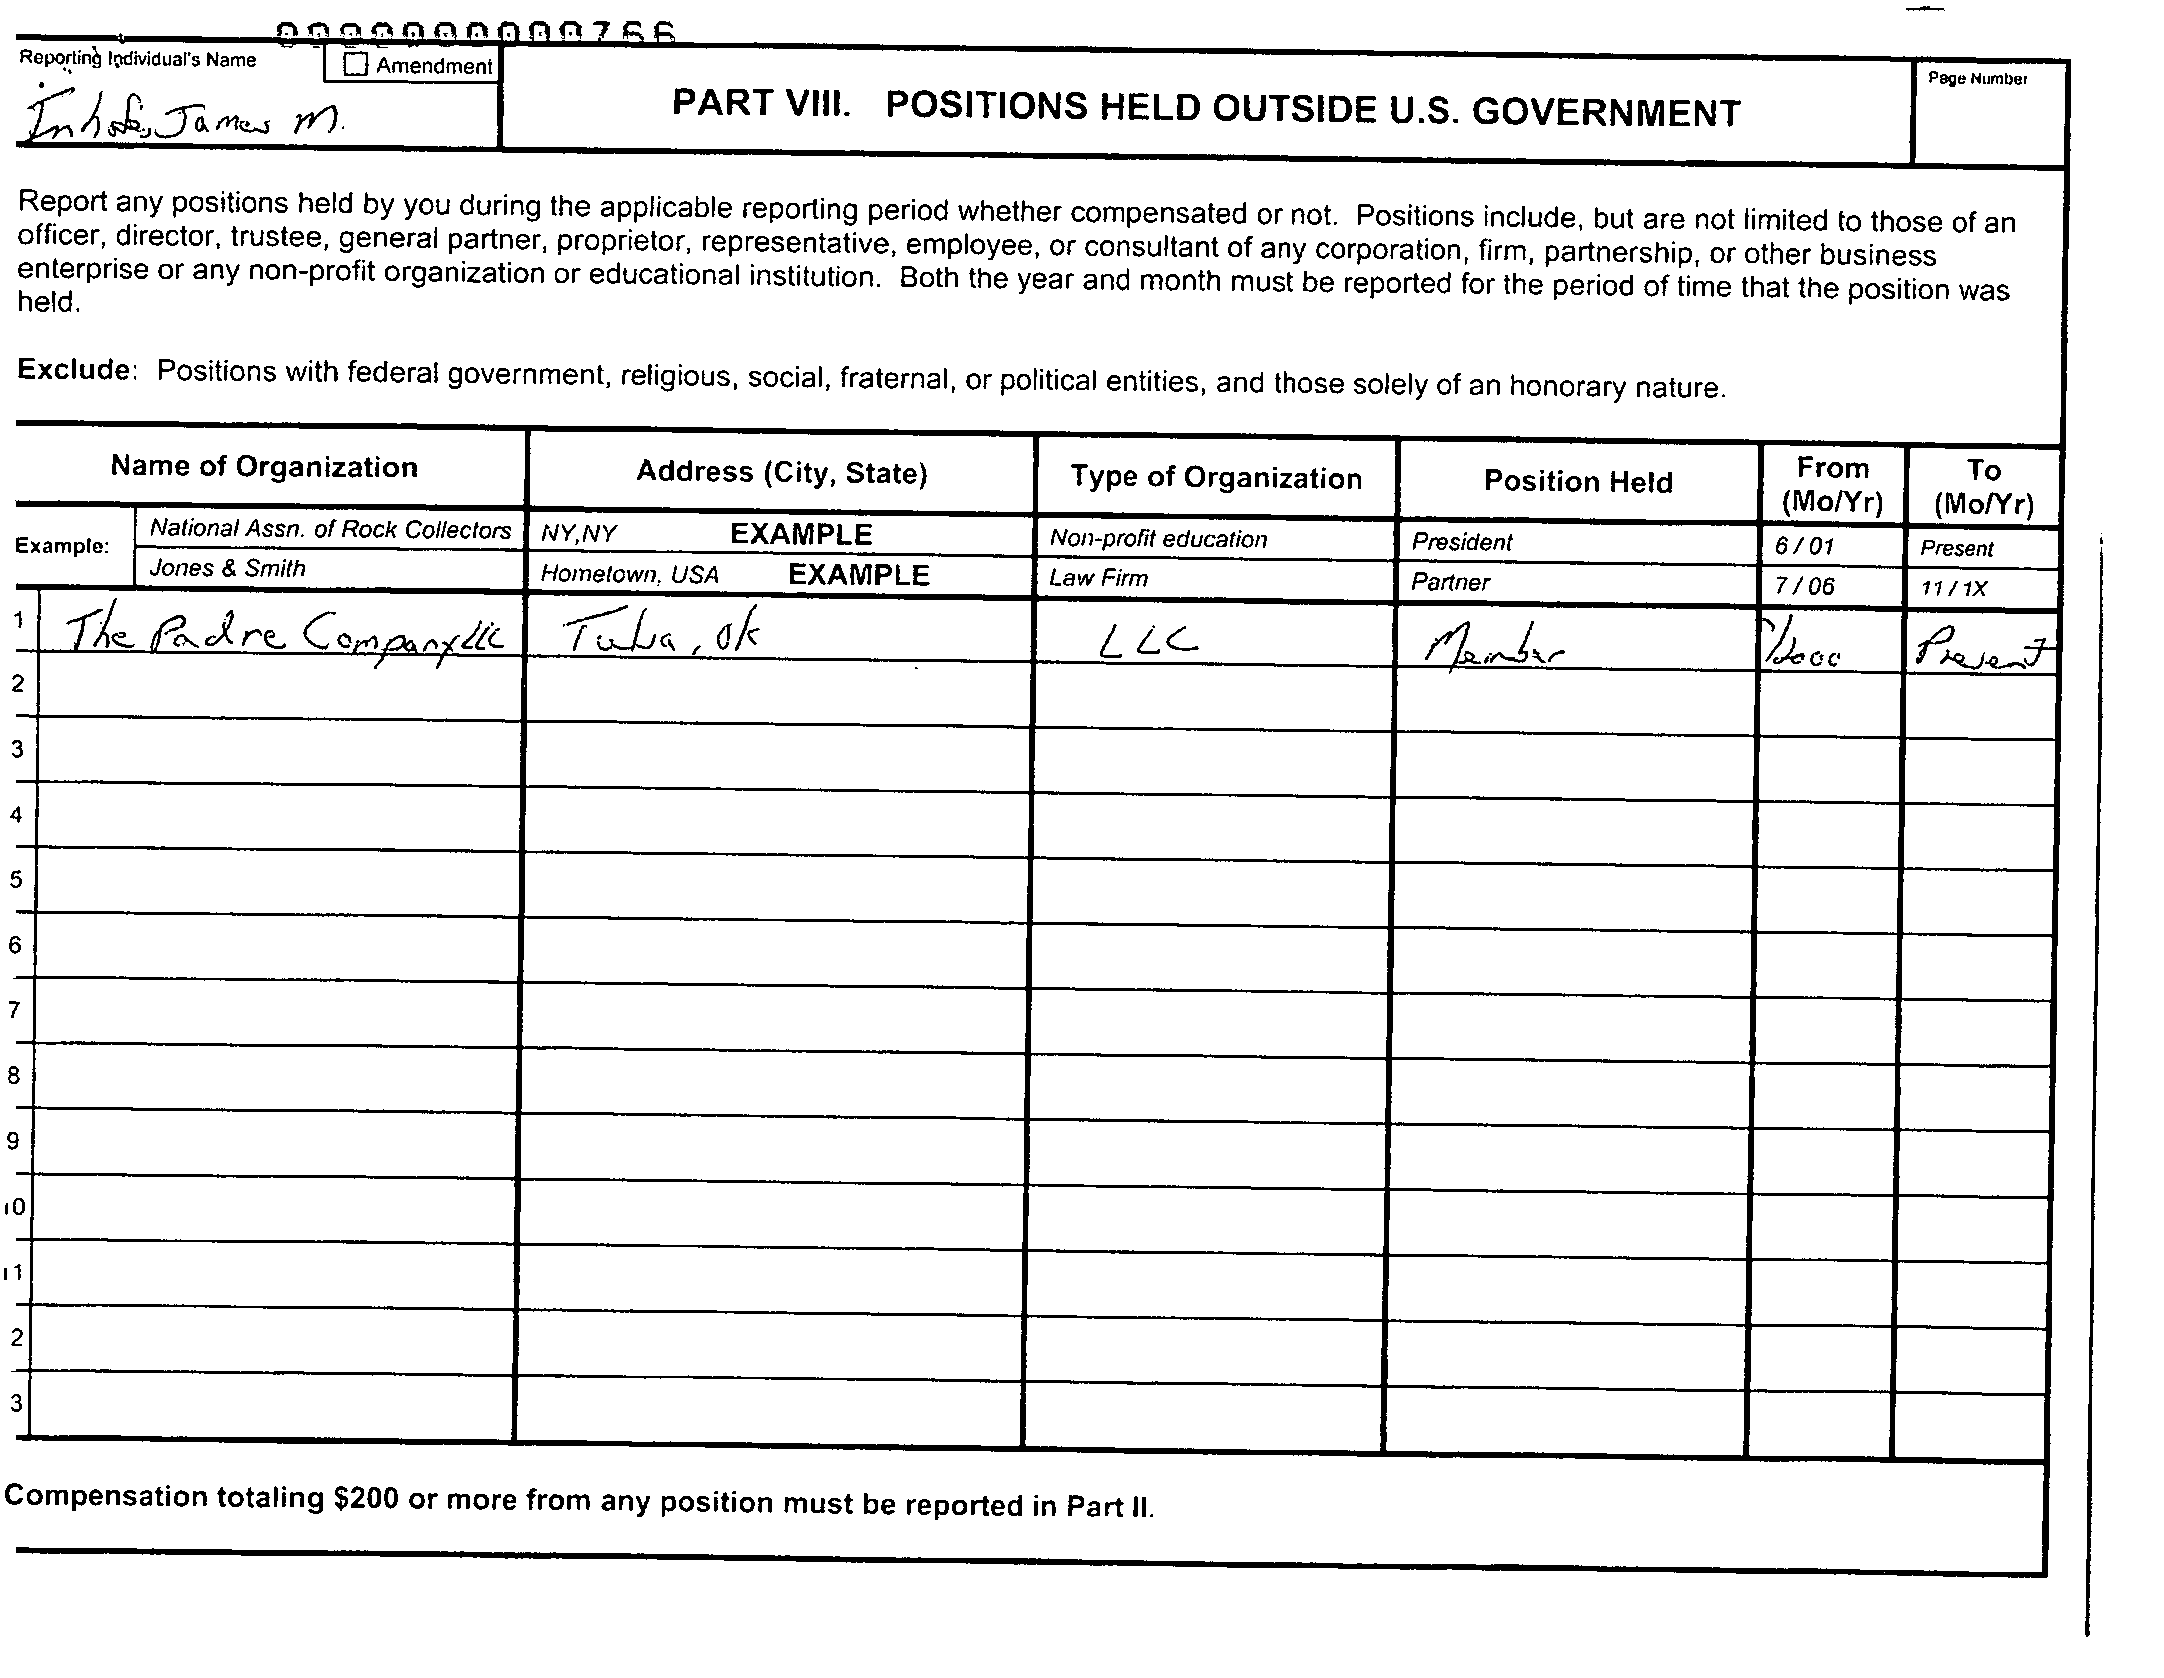 000000000766
Reporting Individual's Name
Amendment
Inhofe, James M.
PART VIII. POSITIONS HELD OUTSIDE U.S. GOVERNMENT
Page Number
Report any positions held by you during the applicable reporting period whether compensated or not. Positions include, but are not limited to those of an
officer, director, trustee, general partner, proprietor, representative, employee, or consultant of any corporation, firm, partnership, or other business
enterprise or any non-profit organization or educational institution. Both the year and month must be reported for the period of time that the position was
held.
Exclude: Positions with federal government, religious, social, fraternal, or political entities, and those solely of an honorary nature.
Name of Organization Address (City, State) Type of Organization Position Held From (Mo/Yr) To (Mo/Yr)
Example:
National Assn. of Rock Collectors NY,NY EXAMPLE Non-profit education President 6 / 01 Present
Jones & Smith Hometown, USA EXAMPLE Law Firm Partner 7 / 06 11 / 1X
1 The Padre Company LLC Tulsa, OK LLC Member Present
2
3
4
5
6
7
8
9
10
11
2
3
Compensation totaling $200 or more from any position must be reported in Part II.